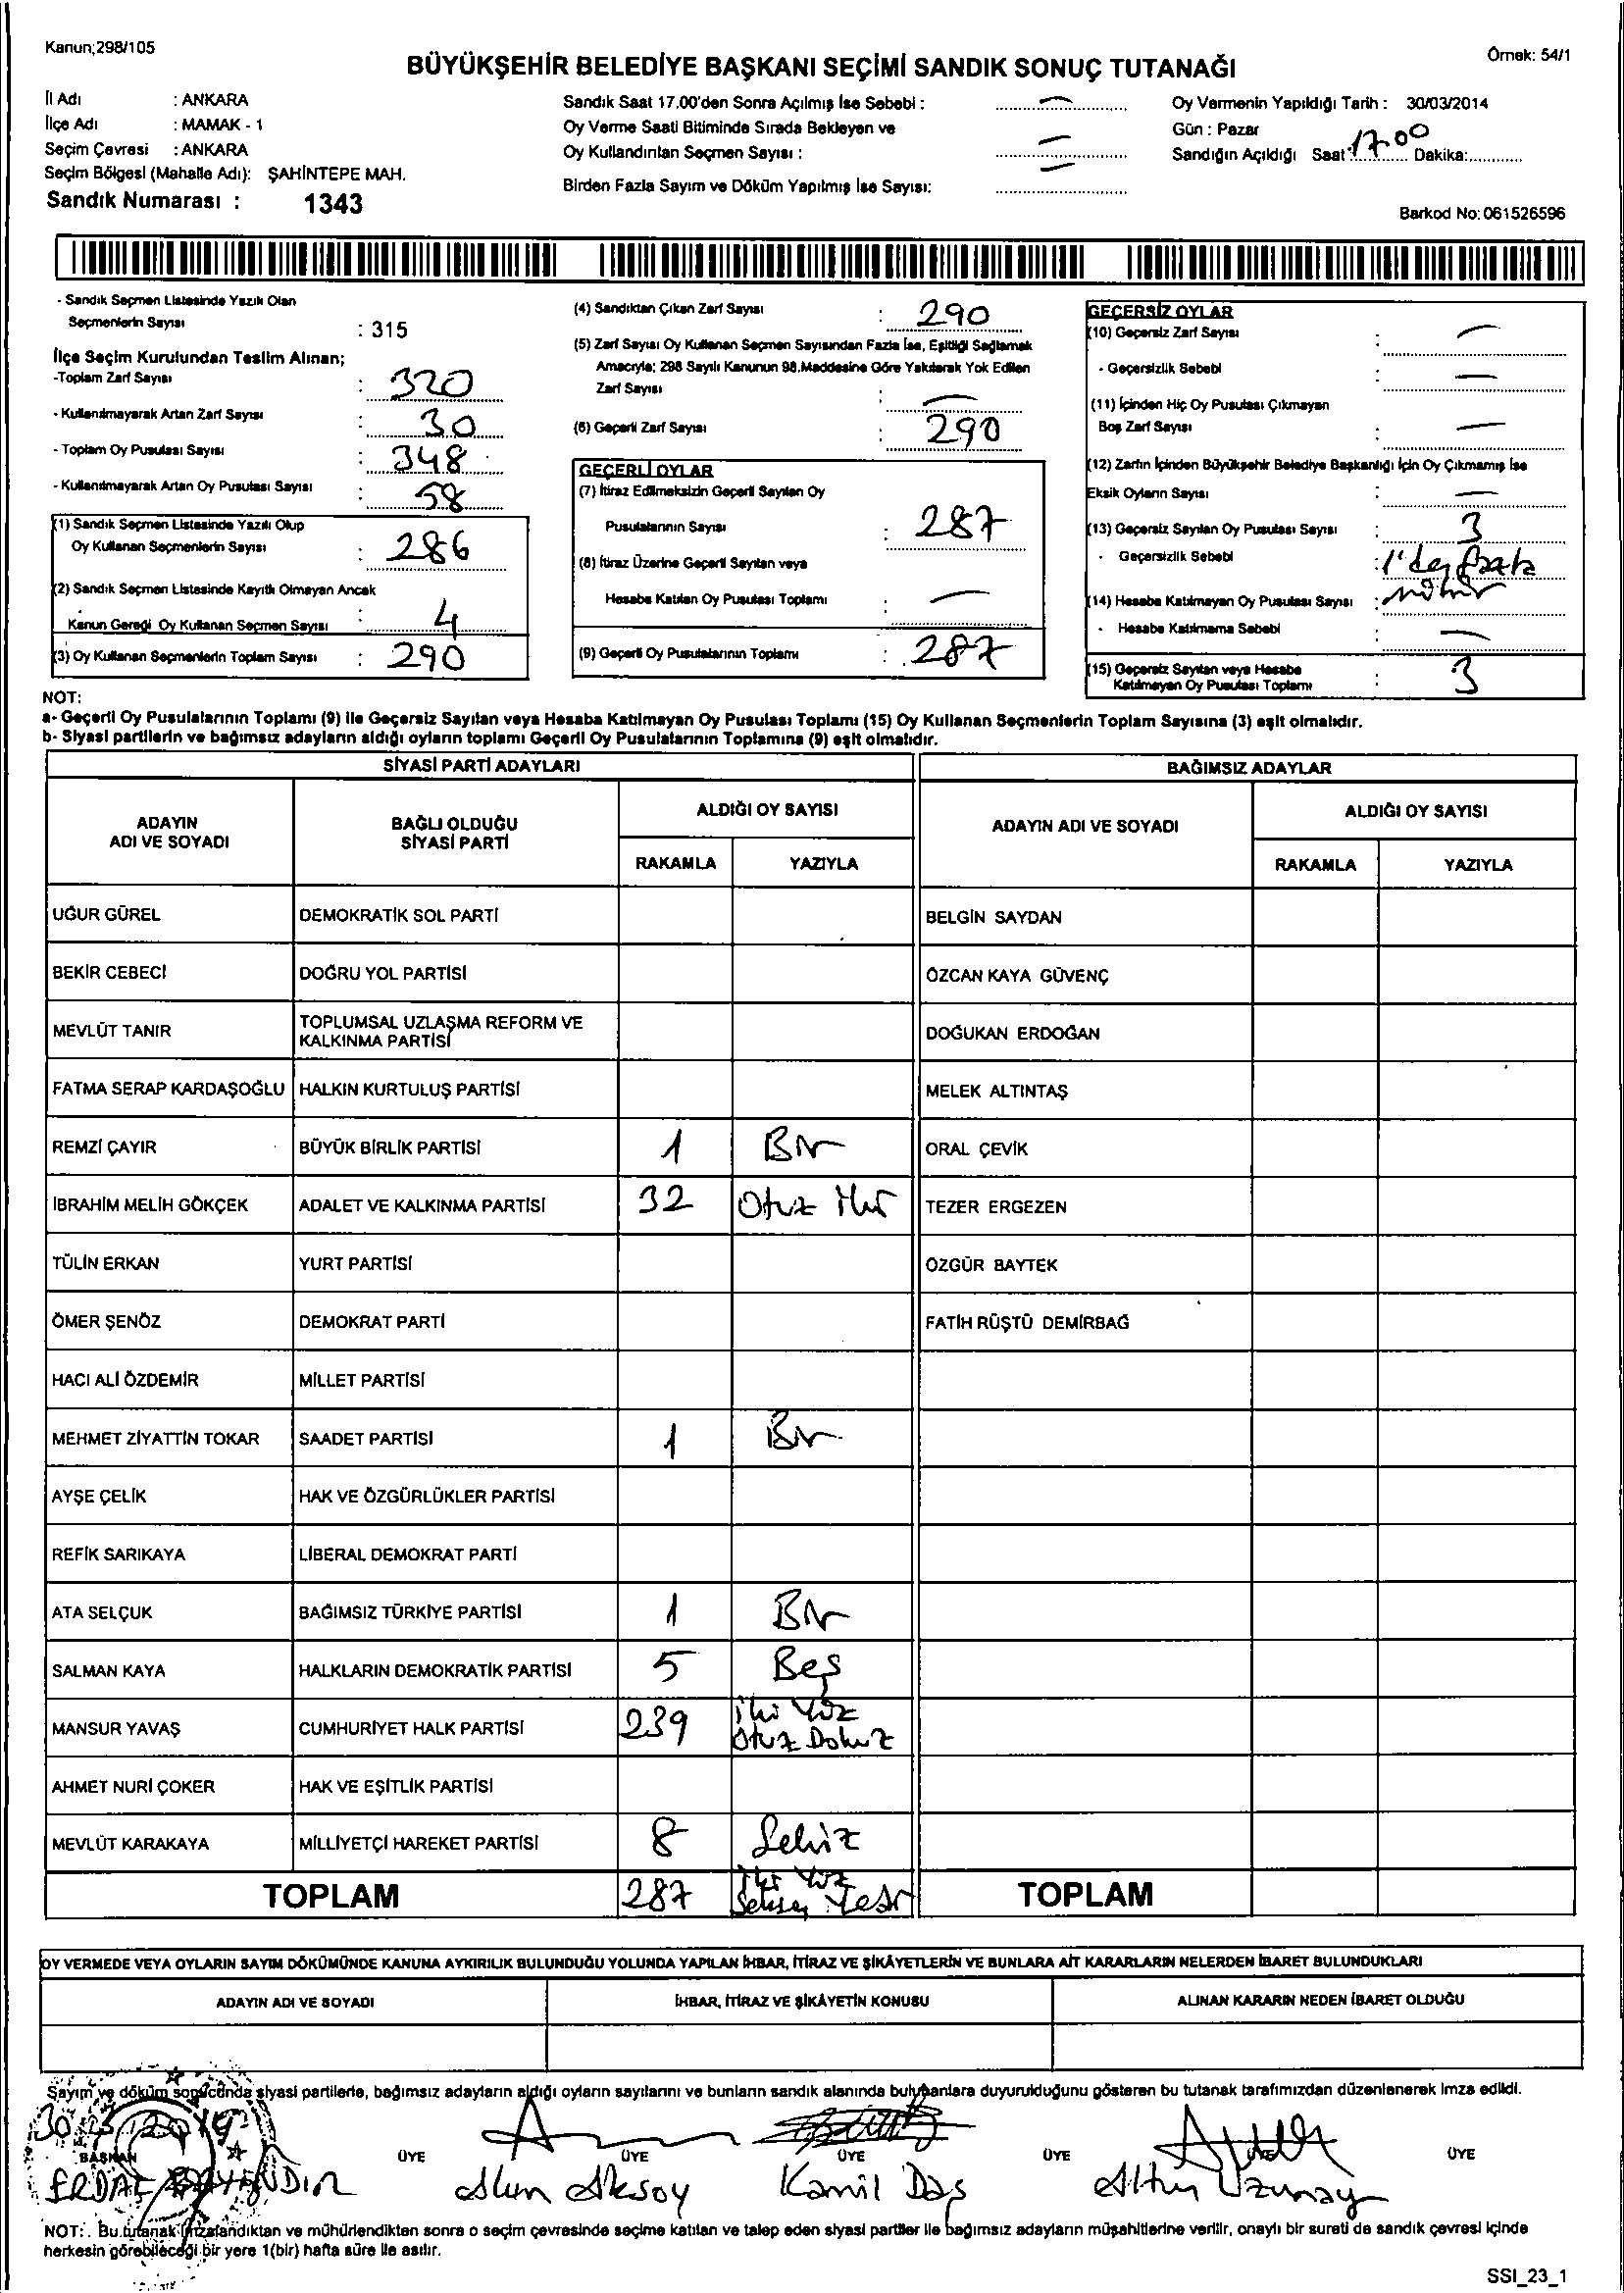 Kanun;298/105
Örnek: 54/1
BÜYÜKŞEHİR BELEDİYE BAŞKANI SEÇİMİ SANDIK SONUÇ TUTANAĞI
İl Adı : ANKARA
İlçe Adı : MAMAK - 1
Seçim Çevresi : ANKARA
Seçim Bölgesi (Mahalle Adı): ŞAHİNTEPE MAH.
Sandık Numarası : 1343
Sandık Saat 17.00'den Sonra Açılmış İse Sebebi : —
Oy Verme Saati Bitiminde Sırada Bekleyen ve
Oy Kullandırılan Seçmen Sayısı : —
Birden Fazla Sayım ve Döküm Yapılmış İse Sayısı: —
Oy Vermenin Yapıldığı Tarih : 30/03/2014
Gün : Pazar
Sandığın Açıldığı Saat 17.00 Dakika:............
Barkod No: 061526596
- Sandık Seçmen Listesinde Yazılı Olan
Seçmenlerin Sayısı : 315
İlçe Seçim Kurulundan Teslim Alınan;
-Toplam Zarf Sayısı : 320
- Kullanılmayarak Artan Zarf Sayısı : 30
- Toplam Oy Pusulası Sayısı : 348
- Kullanılmayarak Artan Oy Pusulası Sayısı : 58
(1) Sandık Seçmen Listesinde Yazılı Olup
Oy Kullanan Seçmenlerin Sayısı : 286
(2) Sandık Seçmen Listesinde Kayıtlı Olmayan Ancak
Kanun Gereği Oy Kullanan Seçmen Sayısı : 4
(3) Oy Kullanan Seçmenlerin Toplam Sayısı : 290
(4) Sandıktan Çıkan Zarf Sayısı : 290
(5) Zarf Sayısı Oy Kullanan Seçmen Sayısından Fazla İse, Eşitliği Sağlamak
Amacıyla; 298 Sayılı Kanunun 98.Maddesine Göre Yakılarak Yok Edilen
Zarf Sayısı : —
(6) Geçerli Zarf Sayısı : 290
GEÇERLİ OYLAR
(7) İtiraz Edilmeksizin Geçerli Sayılan Oy
Pusulalarının Sayısı : 287
(8) İtiraz Üzerine Geçerli Sayılan veya
Hesaba Katılan Oy Pusulası Toplamı : —
(9) Geçerli Oy Pusulalarının Toplamı : 287
GEÇERSİZ OYLAR
(10) Geçersiz Zarf Sayısı : —
- Geçersizlik Sebebi : —
(11) İçinden Hiç Oy Pusulası Çıkmayan
Boş Zarf Sayısı : —
(12) Zarfın İçinden Büyükşehir Belediye Başkanlığı İçin Oy Çıkmamış İse
Eksik Oyların Sayısı : —
(13) Geçersiz Sayılan Oy Pusulası Sayısı : 3
- Geçersizlik Sebebi : 1'den fazla
mühür
(14) Hesaba Katılmayan Oy Pusulası Sayısı :
- Hesaba Katılmama Sebebi : —
(15) Geçersiz Sayılan veya Hesaba
Katılmayan Oy Pusulası Toplamı : 3
NOT:
a- Geçerli Oy Pusulalarının Toplamı (9) ile Geçersiz Sayılan veya Hesaba Katılmayan Oy Pusulası Toplamı (15) Oy Kullanan Seçmenlerin Toplam Sayısına (3) eşit olmalıdır.
b- Siyasi partilerin ve bağımsız adayların aldığı oyların toplamı Geçerli Oy Pusulalarının Toplamına (9) eşit olmalıdır.
SİYASİ PARTİ ADAYLARI
BAĞIMSIZ ADAYLAR
ADAYIN
ADI VE SOYADI
BAĞLI OLDUĞU
SİYASİ PARTİ
ALDIĞI OY SAYISI
RAKAMLA YAZIYLA
ADAYIN ADI VE SOYADI
ALDIĞI OY SAYISI
RAKAMLA YAZIYLA
UĞUR GÜREL DEMOKRATİK SOL PARTİ BELGİN SAYDAN
BEKİR CEBECİ DOĞRU YOL PARTİSİ ÖZCAN KAYA GÜVENÇ
MEVLÜT TANIR TOPLUMSAL UZLAŞMA REFORM VE
KALKINMA PARTİSİ DOĞUKAN ERDOĞAN
FATMA SERAP KARDAŞOĞLU HALKIN KURTULUŞ PARTİSİ MELEK ALTINTAŞ
REMZİ ÇAYIR BÜYÜK BİRLİK PARTİSİ 1 Bir ORAL ÇEVİK
İBRAHİM MELİH GÖKÇEK ADALET VE KALKINMA PARTİSİ 32 Otuz iki TEZER ERGEZEN
TÜLİN ERKAN YURT PARTİSİ ÖZGÜR BAYTEK
ÖMER ŞENÖZ DEMOKRAT PARTİ FATİH RÜŞTÜ DEMİRBAĞ
HACI ALİ ÖZDEMİR MİLLET PARTİSİ
MEHMET ZİYATTİN TOKAR SAADET PARTİSİ 1 Bir
AYŞE ÇELİK HAK VE ÖZGÜRLÜKLER PARTİSİ
REFİK SARIKAYA LİBERAL DEMOKRAT PARTİ
ATA SELÇUK BAĞIMSIZ TÜRKİYE PARTİSİ 1 Bir
SALMAN KAYA HALKLARIN DEMOKRATİK PARTİSİ 5 Beş
MANSUR YAVAŞ CUMHURİYET HALK PARTİSİ 239 İki Yüz
Otuz Dokuz
AHMET NURİ ÇOKER HAK VE EŞİTLİK PARTİSİ
MEVLÜT KARAKAYA MİLLİYETÇİ HAREKET PARTİSİ 8 Sekiz
TOPLAM 287 İki Yüz
Seksen Yedi TOPLAM
OY VERMEDE VEYA OYLARIN SAYIM DÖKÜMÜNDE KANUNA AYKIRILIK BULUNDUĞU YOLUNDA YAPILAN İHBAR, İTİRAZ VE ŞİKÂYETLERİN VE BUNLARA AİT KARARLARIN NELERDEN İBARET BULUNDUKLARI
ADAYIN ADI VE SOYADI İHBAR, İTİRAZ VE ŞİKÂYETİN KONUSU ALINAN KARARIN NEDEN İBARET OLDUĞU
Sayım ve döküm sonucunda siyasi partilerle, bağımsız adayların aldığı oyların sayılarını ve bunların sandık alanında bulunanlara duyurulduğunu gösteren bu tutanak tarafımızdan düzenlenerek imza edildi.
BAŞKAN ÜYE ÜYE ÜYE ÜYE ÜYE ÜYE
Aksoy Kamil Daş Uzunay
NOT:. Bu tutanak imzalandıktan ve mühürlendikten sonra o seçim çevresinde seçime katılan ve talep eden siyasi partiler ile bağımsız adayların müşahitlerine verilir, onaylı bir sureti de sandık çevresi içinde
herkesin görebileceği bir yere 1(bir) hafta süre ile asılır.
SSI_23_1